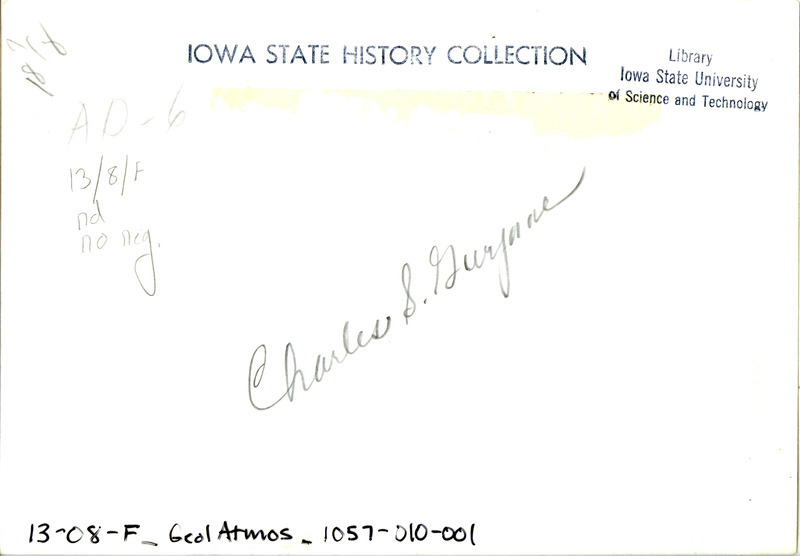 IOWA STATE HISTORY COLLECTION
Library
Iowa State University
of Science and Technology
AD-6
13/8/F
nd
no neg.
Charles S. Gurjane
13-08-F_ Geol Atmos _ 1057-010-001